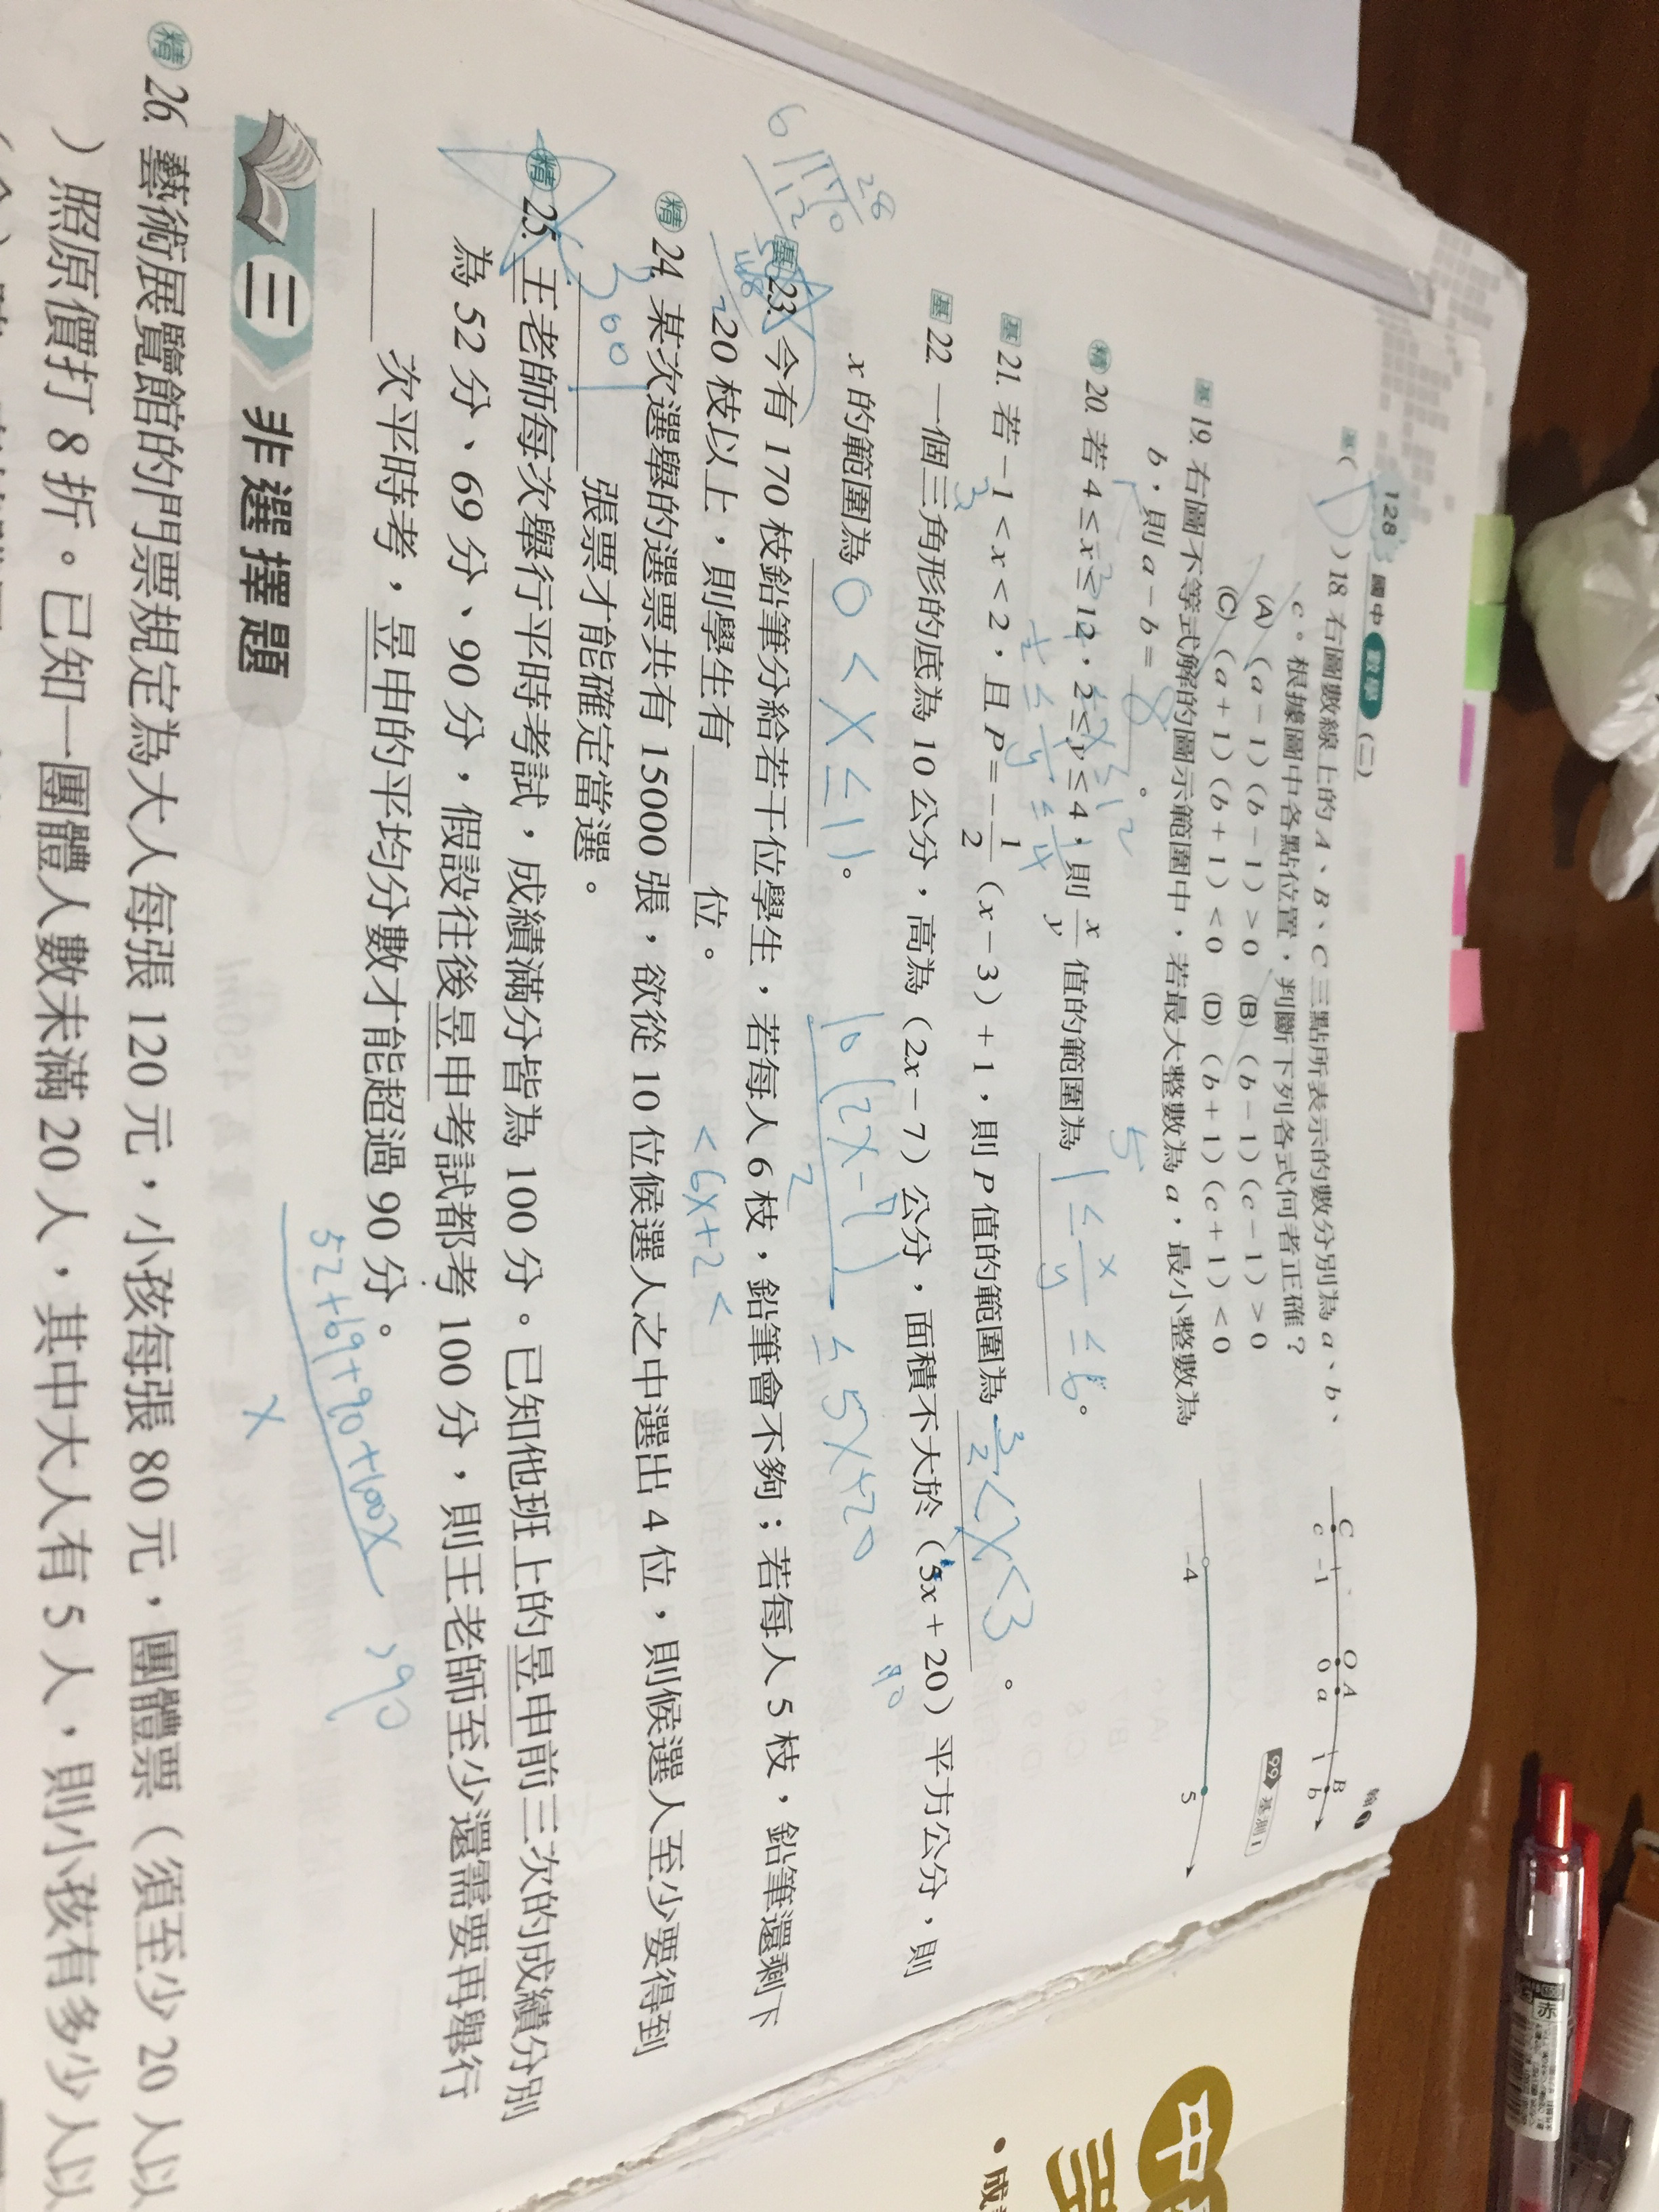 128 國中 數學 (二)
翰
基( )18. 右圖數線上的 A、B、C 三點所表示的數分別為 a、b、
c。根據圖中各點位置，判斷下列各式何者正確？
(A)(a－1)(b－1)＞0 (B)(b－1)(c－1)＞0
(C)(a＋1)(b＋1)＜0 (D)(b＋1)(c＋1)＜0
C O A B
c －1 0 a 1 b
99 基測 I
基 19. 右圖不等式解的圖示範圍中，若最大整數為 a，最小整數為
b，則 a－b＝ 8 。
－4 5
精 20. 若 4≤x≤12，2≤y≤4，則 x/y 值的範圍為 1≤x/y≤6。
基 21. 若－1＜x＜2，且 P＝－1/2(x－3)＋1，則 P 值的範圍為 3/2<x<3 。
基 22. 一個三角形的底為 10 公分，高為(2x－7)公分，面積不大於(5x＋20)平方公分，則
x 的範圍為 0<x≤11。
10(2x-7)/2 ≤ 5x+20
基 23. 今有 170 枝鉛筆分給若干位學生，若每人 6 枝，鉛筆會不夠；若每人 5 枝，鉛筆還剩下
20 枝以上，則學生有 位。
<6x+2<
精 24. 某次選舉的選票共有 15000 張，欲從 10 位候選人之中選出 4 位，則候選人至少要得到
3001 張票才能確定當選。
精 25. 王老師每次舉行平時考試，成績滿分皆為 100 分。已知他班上的昱申前三次的成績分別
為 52 分、69 分、90 分，假設往後昱申考試都考 100 分，則王老師至少還需要再舉行
次平時考，昱申的平均分數才能超過 90 分。
52+69+90+100x
x
>90
三 非選擇題
精 26. 藝術展覽館的門票規定為大人每張 120 元，小孩每張 80 元，團體票（須至少 20 人以
）照原價打 8 折。已知一團體人數未滿 20 人，其中大人有 5 人，則小孩有多少人以
中
• 成